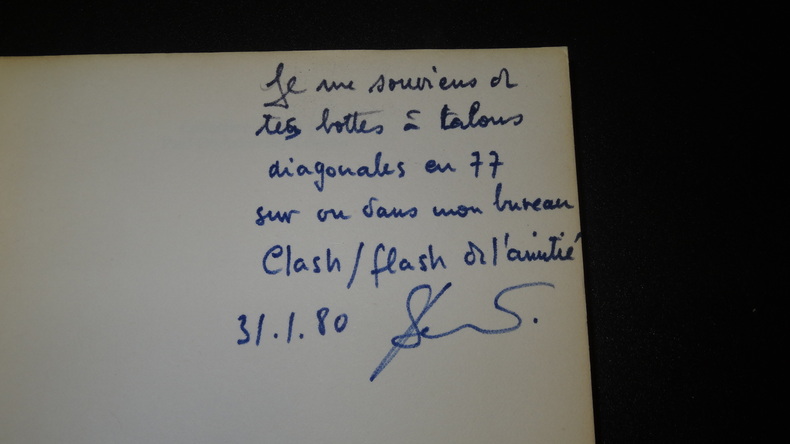 Je me souviens de
tes bottes à talons
diagonales en 77
sur ou dans mon bureau
Clash/flash de l'amitié
31.1.80